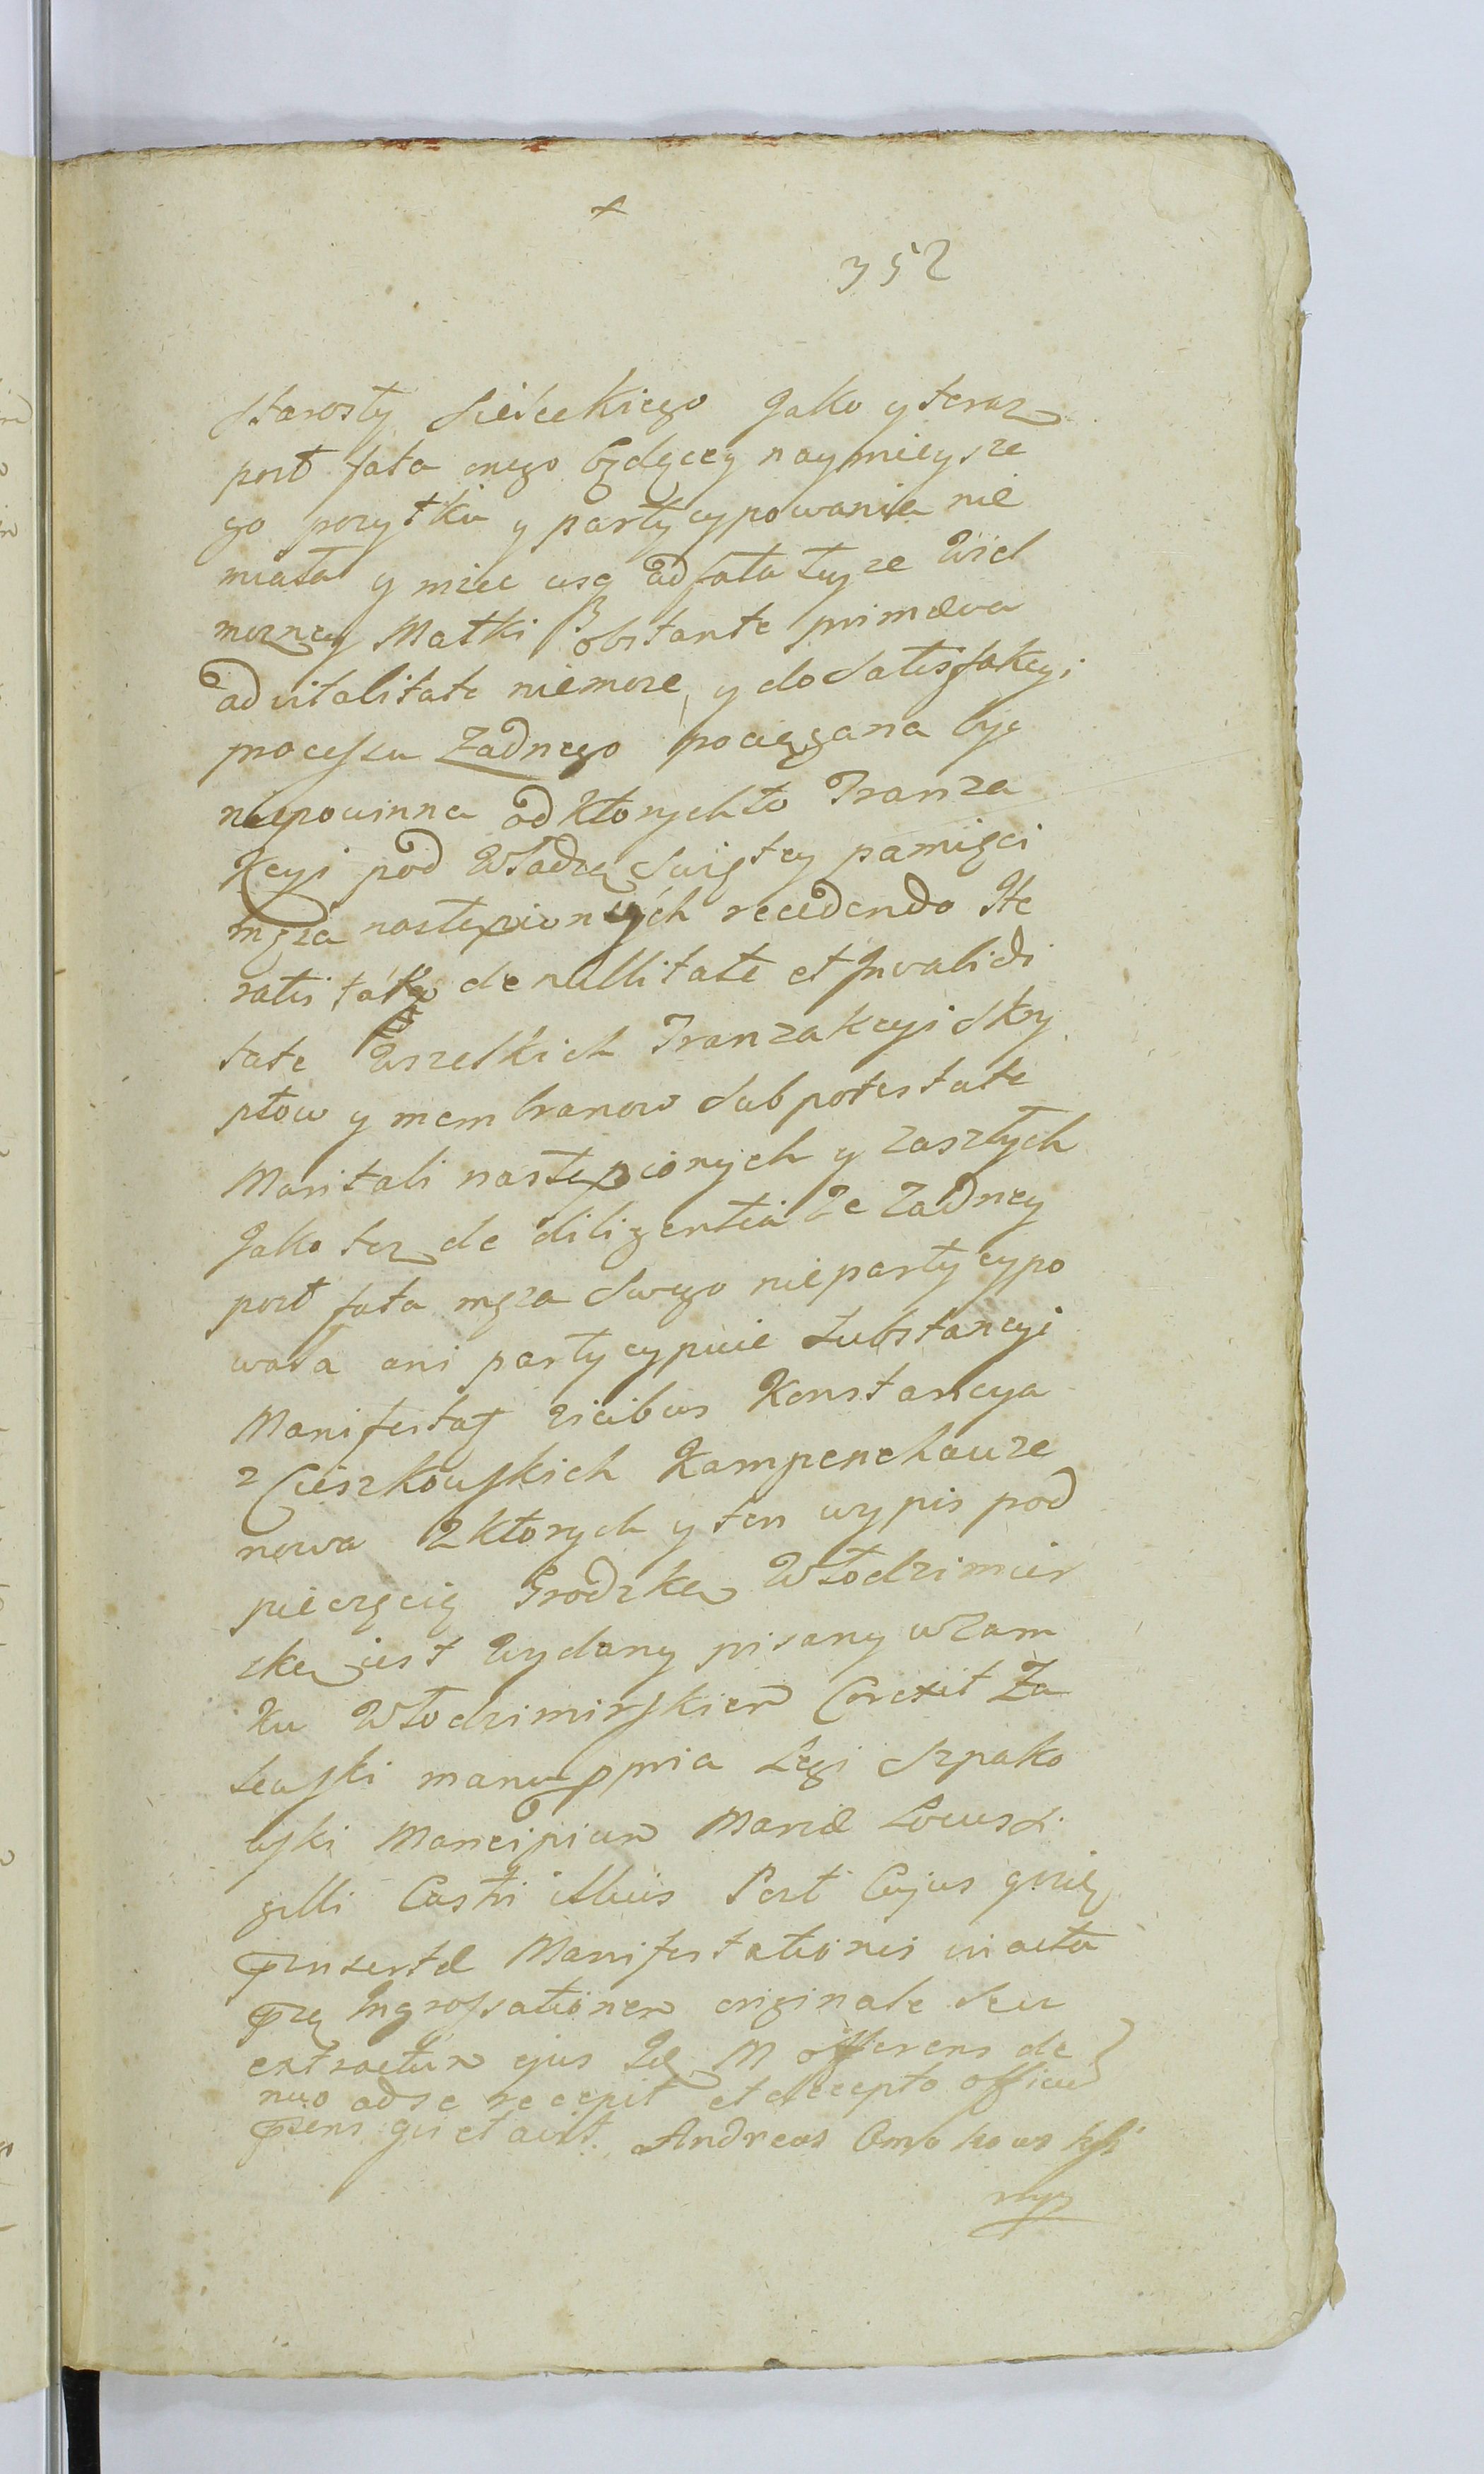 352
Starosty Sieleckiego Jako y teraz
post fata onego będącey naymieysze
go pozytku y partycypowania nie
miała y miec usq ad fata teyze Wiel
mozney Matki obstante primæva
advitalitate niemoze, y do satisfakcyi
processu Zadnego pociągana byc
niepowinna od ktorychto Tranza
kcyi pod Władzą Swiętey pamięci
męza nastąpionych recedendo Ite
ratis de nullitate et Invalidi
tate Wszelkich Tranzakcyi Skry
ptow y membranow Sub potestate
Maritali nastąpionych y zaszłych
Jako tez de diligentia Ze Zadney
post fata męza Swego niepartycypo
wała ani partycypuie Substancyi
Manifestat vicibus Konstancya
z Cieszkowskich Kampenchauze
nowa Z ktorych y ten wypis pod
pieczęcią Grodzką Włodzimier
ską iest Wydany pisany w Zam
ku Włodzimirskiem Corexit Za
leuski manu ppria Legi Szpako
wski Mancipium Mariæ Locus Si
gilli Castri illius Post Cujus quidę
Insertæ Manifestationis in acta
Ingrossationem originale Seu
extractum ejus Idę M offerens de
nuo ad se recepit et de recepto officiu
quietavit. Andreas Omokowski
mp